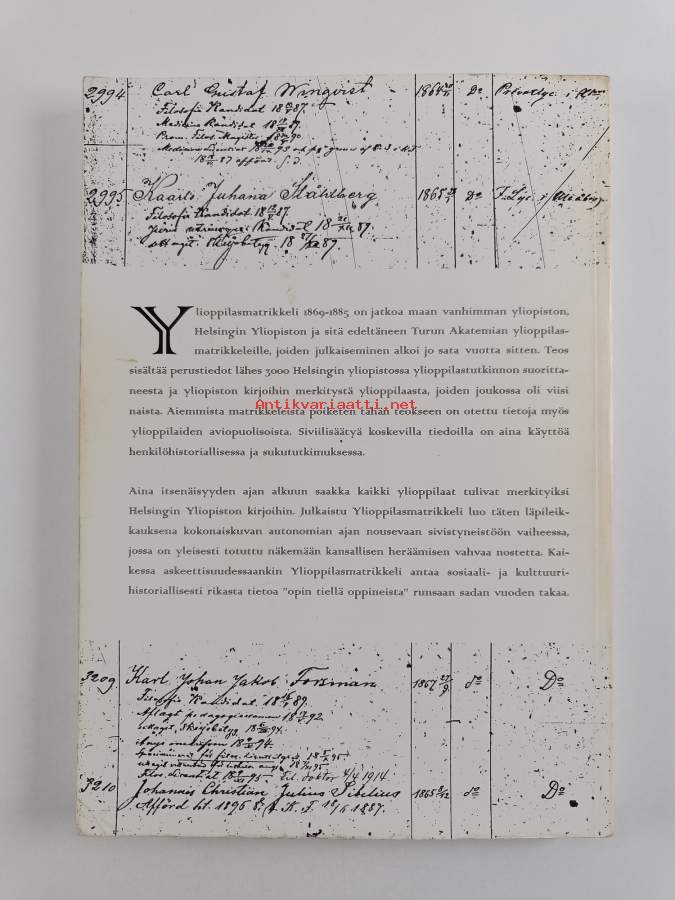 2994 Carl Gustaf Winqvist 1866 Do Privatlyc. i
Filosofie Kandidat 18 87.
Medicine Kandidat 18 89.
Prom. Filos. Magister 18 90.
Medicine Licentiat 18 95
18 87 afförd.
2995 Kaarlo Juhana Ståhlberg 1865 Do F. Lyc. i Uleåborg.
Filosofie Kandidat 18 87.
Juris utriusque Kandidat 18 87.
Ylioppilasmatrikkeli 1869-1885 on jatkoa maan vanhimman yliopiston,
Helsingin Yliopiston ja sitä edeltäneen Turun Akatemian ylioppilas-
matrikkeleille, joiden julkaiseminen alkoi jo sata vuotta sitten. Teos
sisältää perustiedot lähes 3000 Helsingin yliopistossa ylioppilastutkinnon suoritta-
neesta ja yliopiston kirjoihin merkitystä ylioppilaasta, joiden joukossa oli viisi
naista. Aiemmista matrikkeleista poiketen tähän teokseen on otettu tietoja myös
Antikvariaatti.net
ylioppilaiden aviopuolisoista. Siviilisäätyä koskevilla tiedoilla on aina käyttöä
henkilöhistoriallisessa ja sukututkimuksessa.
Aina itsenäisyyden ajan alkuun saakka kaikki ylioppilaat tulivat merkityiksi
Helsingin Yliopiston kirjoihin. Julkaistu Ylioppilasmatrikkeli luo täten läpileik-
kauksena kokonaiskuvan autonomian ajan nousevaan sivistyneistöön vaiheessa,
jossa on yleisesti totuttu näkemään kansallisen heräämisen vahvaa nostetta. Kai-
kessa askeettisuudessaankin Ylioppilasmatrikkeli antaa sosiaali- ja kulttuuri-
historiallisesti rikasta tietoa "opin tiellä oppineista" runsaan sadan vuoden takaa.
3209 Karl Johan Jakob Forsman 1867 27/9 do Do
Filosofie Kandidat 18 89.
Aflagt pedagogieexamen 18 92.
18 94.
18 94.
18 95.
Filos. Licentiat 18 95 Fil. doktor 4/4 1914.
3210 Johannes Christian Julius Sibelius 1865 8/12 do Do
Afförd ht. 1896 18/6 1887.